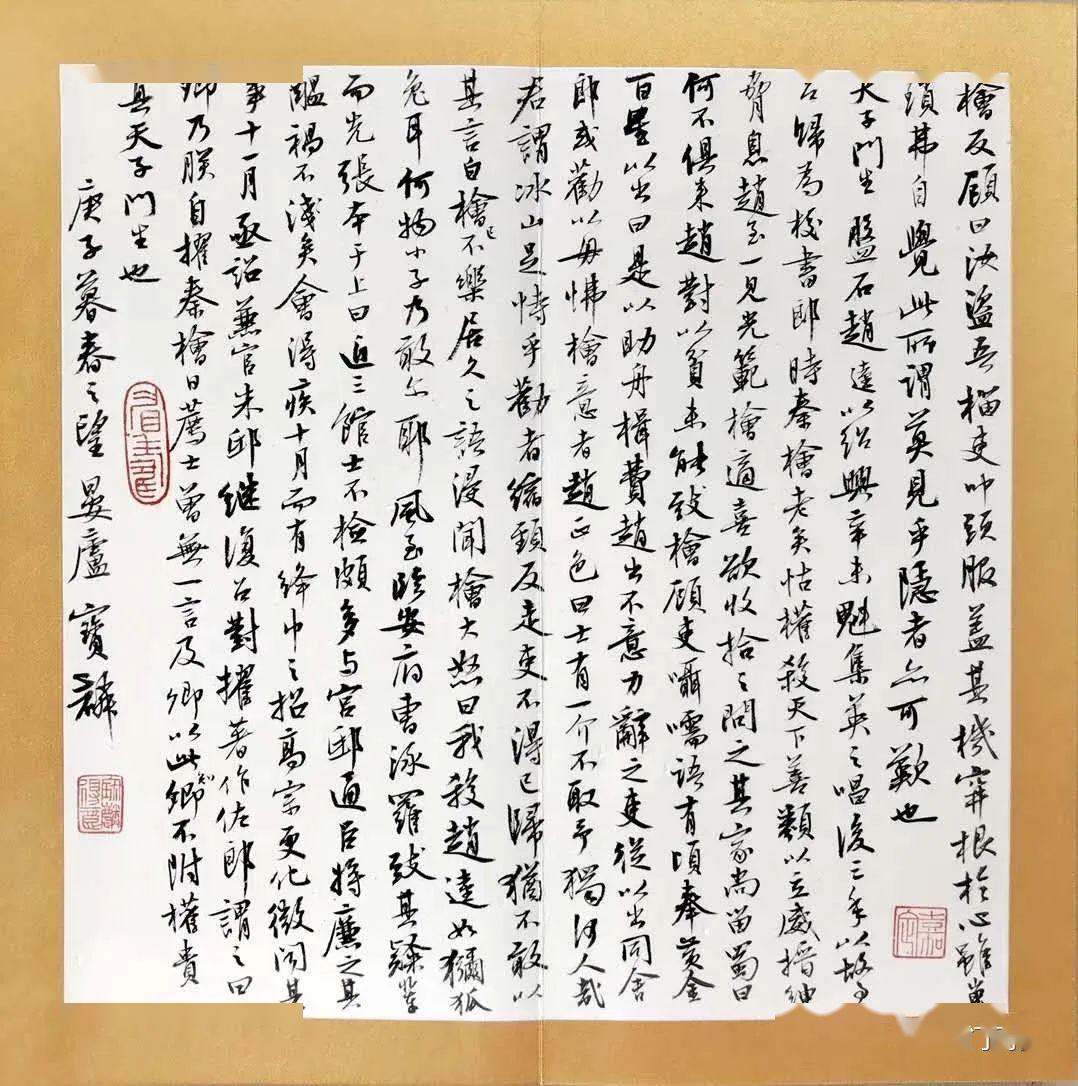 檜反顧曰汝盜吾榴吏叩頭服蓋其機穽根於心雖嵬
瑣弗自覺此所謂莫見乎隱者亦可歎也
天子門生盤石趙逵以紹興辛未魁集英之唱後三年以故事
召歸為校書郎時秦檜老矣怙權殺天下善類以立威搢紳
脅息趙至一見光範檜適喜欲收拾之問之其家尚留蜀曰
何不俱來趙對以貧未能致檜顧吏囁嚅語有頃奉黃金
百星以出曰是以助舟楫費趙出不意力辭之吏從以出同舍
郎或勸以毋怫檜意者趙正色曰士有一介不取予獨何人哉
君謂冰山足恃乎勸者縮頸反走吏不得已歸猶不敢以
其言白檜已不樂居久之語浸聞檜大怒曰我殺趙逵如獼狐
兔耳何物小子乃敢爾耶風至臨安府曹泳羅致其疑輩
而先張本于上曰近三館士不檢頗多与宮邸通臣將廉之其
醞禍不淺矣會得疾十月而有絳巾之招高宗更化微聞其
事十一月亟詔兼官朱邸繼復召對擢著作佐郎謂之曰
卿乃朕自擢秦檜日薦士曾無一言及卿以此知卿不附權貴
真天子門生也
庚子暮春之望 晏廬 寶麟